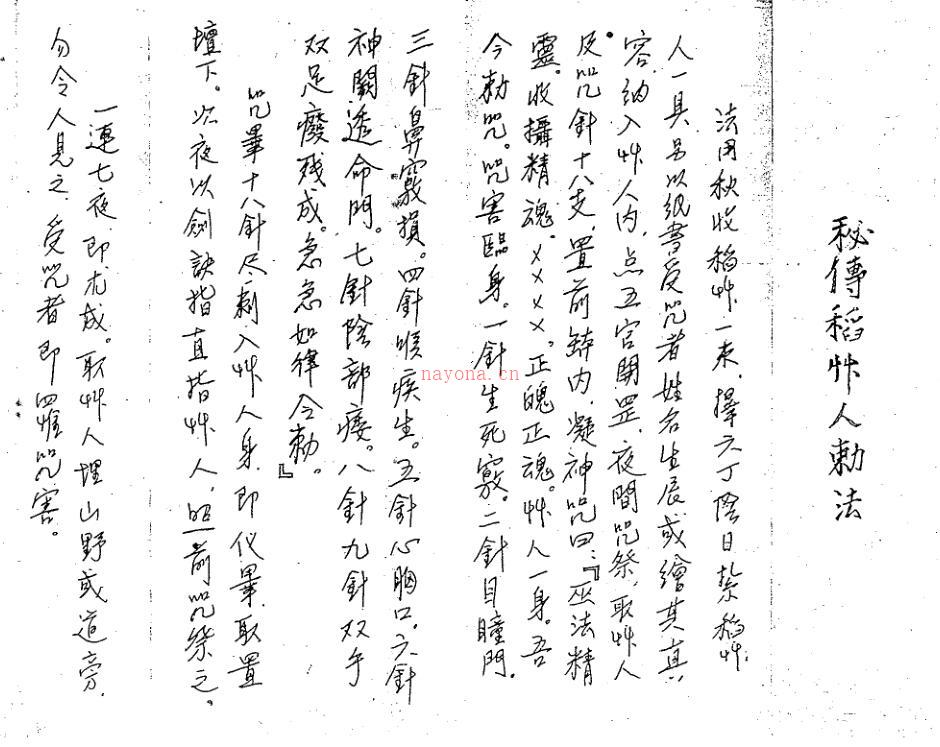 秘傳稻艸人勅法
法用秋收稻艸一束，擇六丁陰日紮稻艸
人一具另以紙書受咒者姓名生辰或繪其真
容，納入艸人內，点五官開罡，夜間咒祭，取艸人
及咒針十八支，置前鉢內，凝神咒曰：『巫法精
靈。收攝精魂。××××。正魄正魂。艸人一身。吾
今勅咒。咒害臨身。一針生死竅。二針目瞳門。
三針鼻竅損。四針喉疾生。五針心胸口。六針
神闕透命門。七針陰部痿。八針九針双手
双足癈残成。急急如律令勅。』
咒畢十八針尽刺入艸人身，即仪畢，取置
壇下。次夜以劍訣指直指艸人，照前咒祭之。
一連七夜，即尤成。取艸人埋山野或道旁，
勿令人見之，受咒者即罹咒害。
nayona.cn